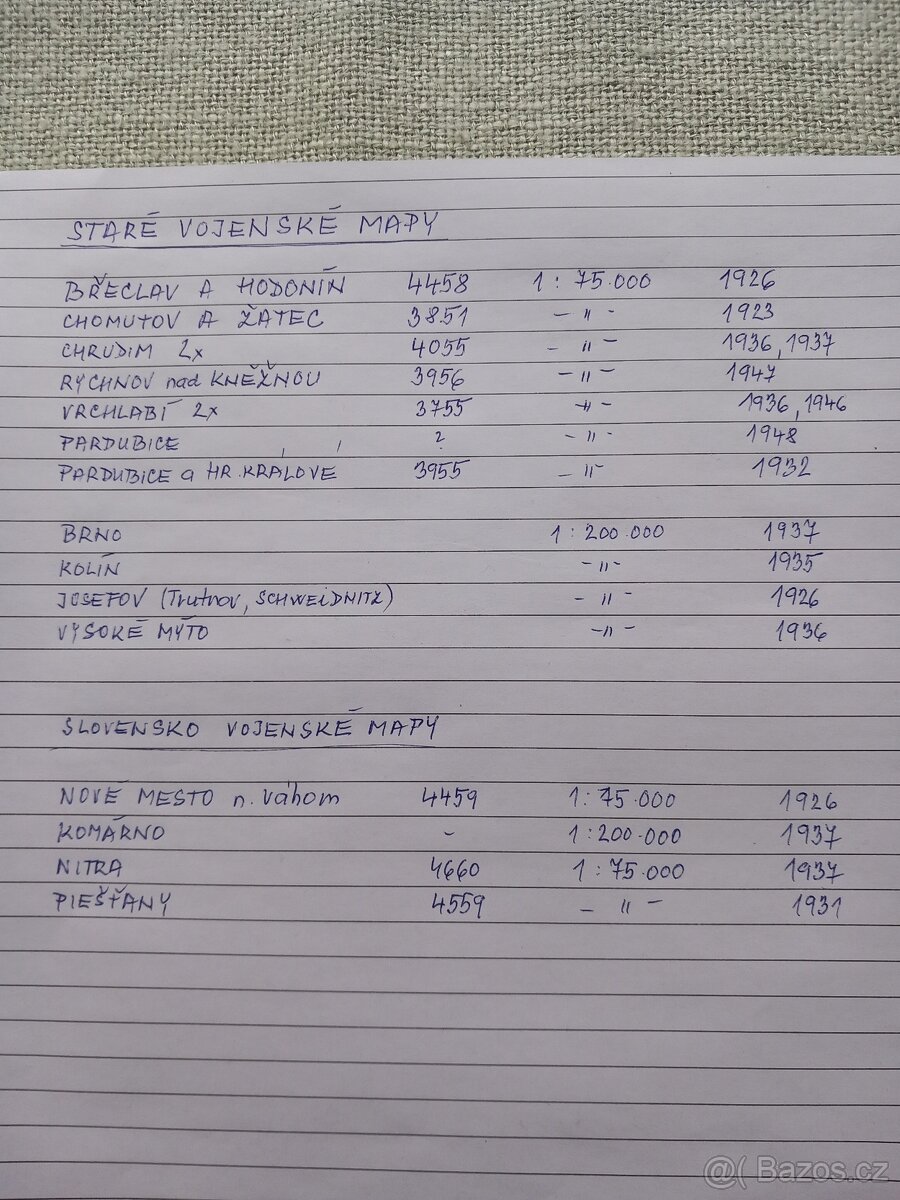 STARÉ VOJENSKÉ MAPY
BŘECLAV A HODONÍN 4458 1 : 75.000 1926
CHOMUTOV A ŽATEC 3851 - " - 1923
CHRUDIM 2x 4055 - " - 1936, 1937
RYCHNOV nad KNĚŽNOU 3956 - " - 1947
VRCHLABÍ 2x 3755 - " - 1936, 1946
PARDUBICE ? - " - 1948
PARDUBICE a HR. KRÁLOVÉ 3955 - " - 1932
BRNO 1 : 200.000 1937
KOLÍN - " - 1935
JOSEFOV (Trutnov, SCHWEIDNITZ) - " - 1926
VYSOKÉ MÝTO - " - 1936
SLOVENSKO VOJENSKÉ MAPY
NOVÉ MESTO n. Váhom 4459 1 : 75.000 1926
KOMÁRNO - 1 : 200.000 1937
NITRA 4660 1 : 75.000 1937
PIEŠŤANY 4559 - " - 1931
@( Bazos.cz